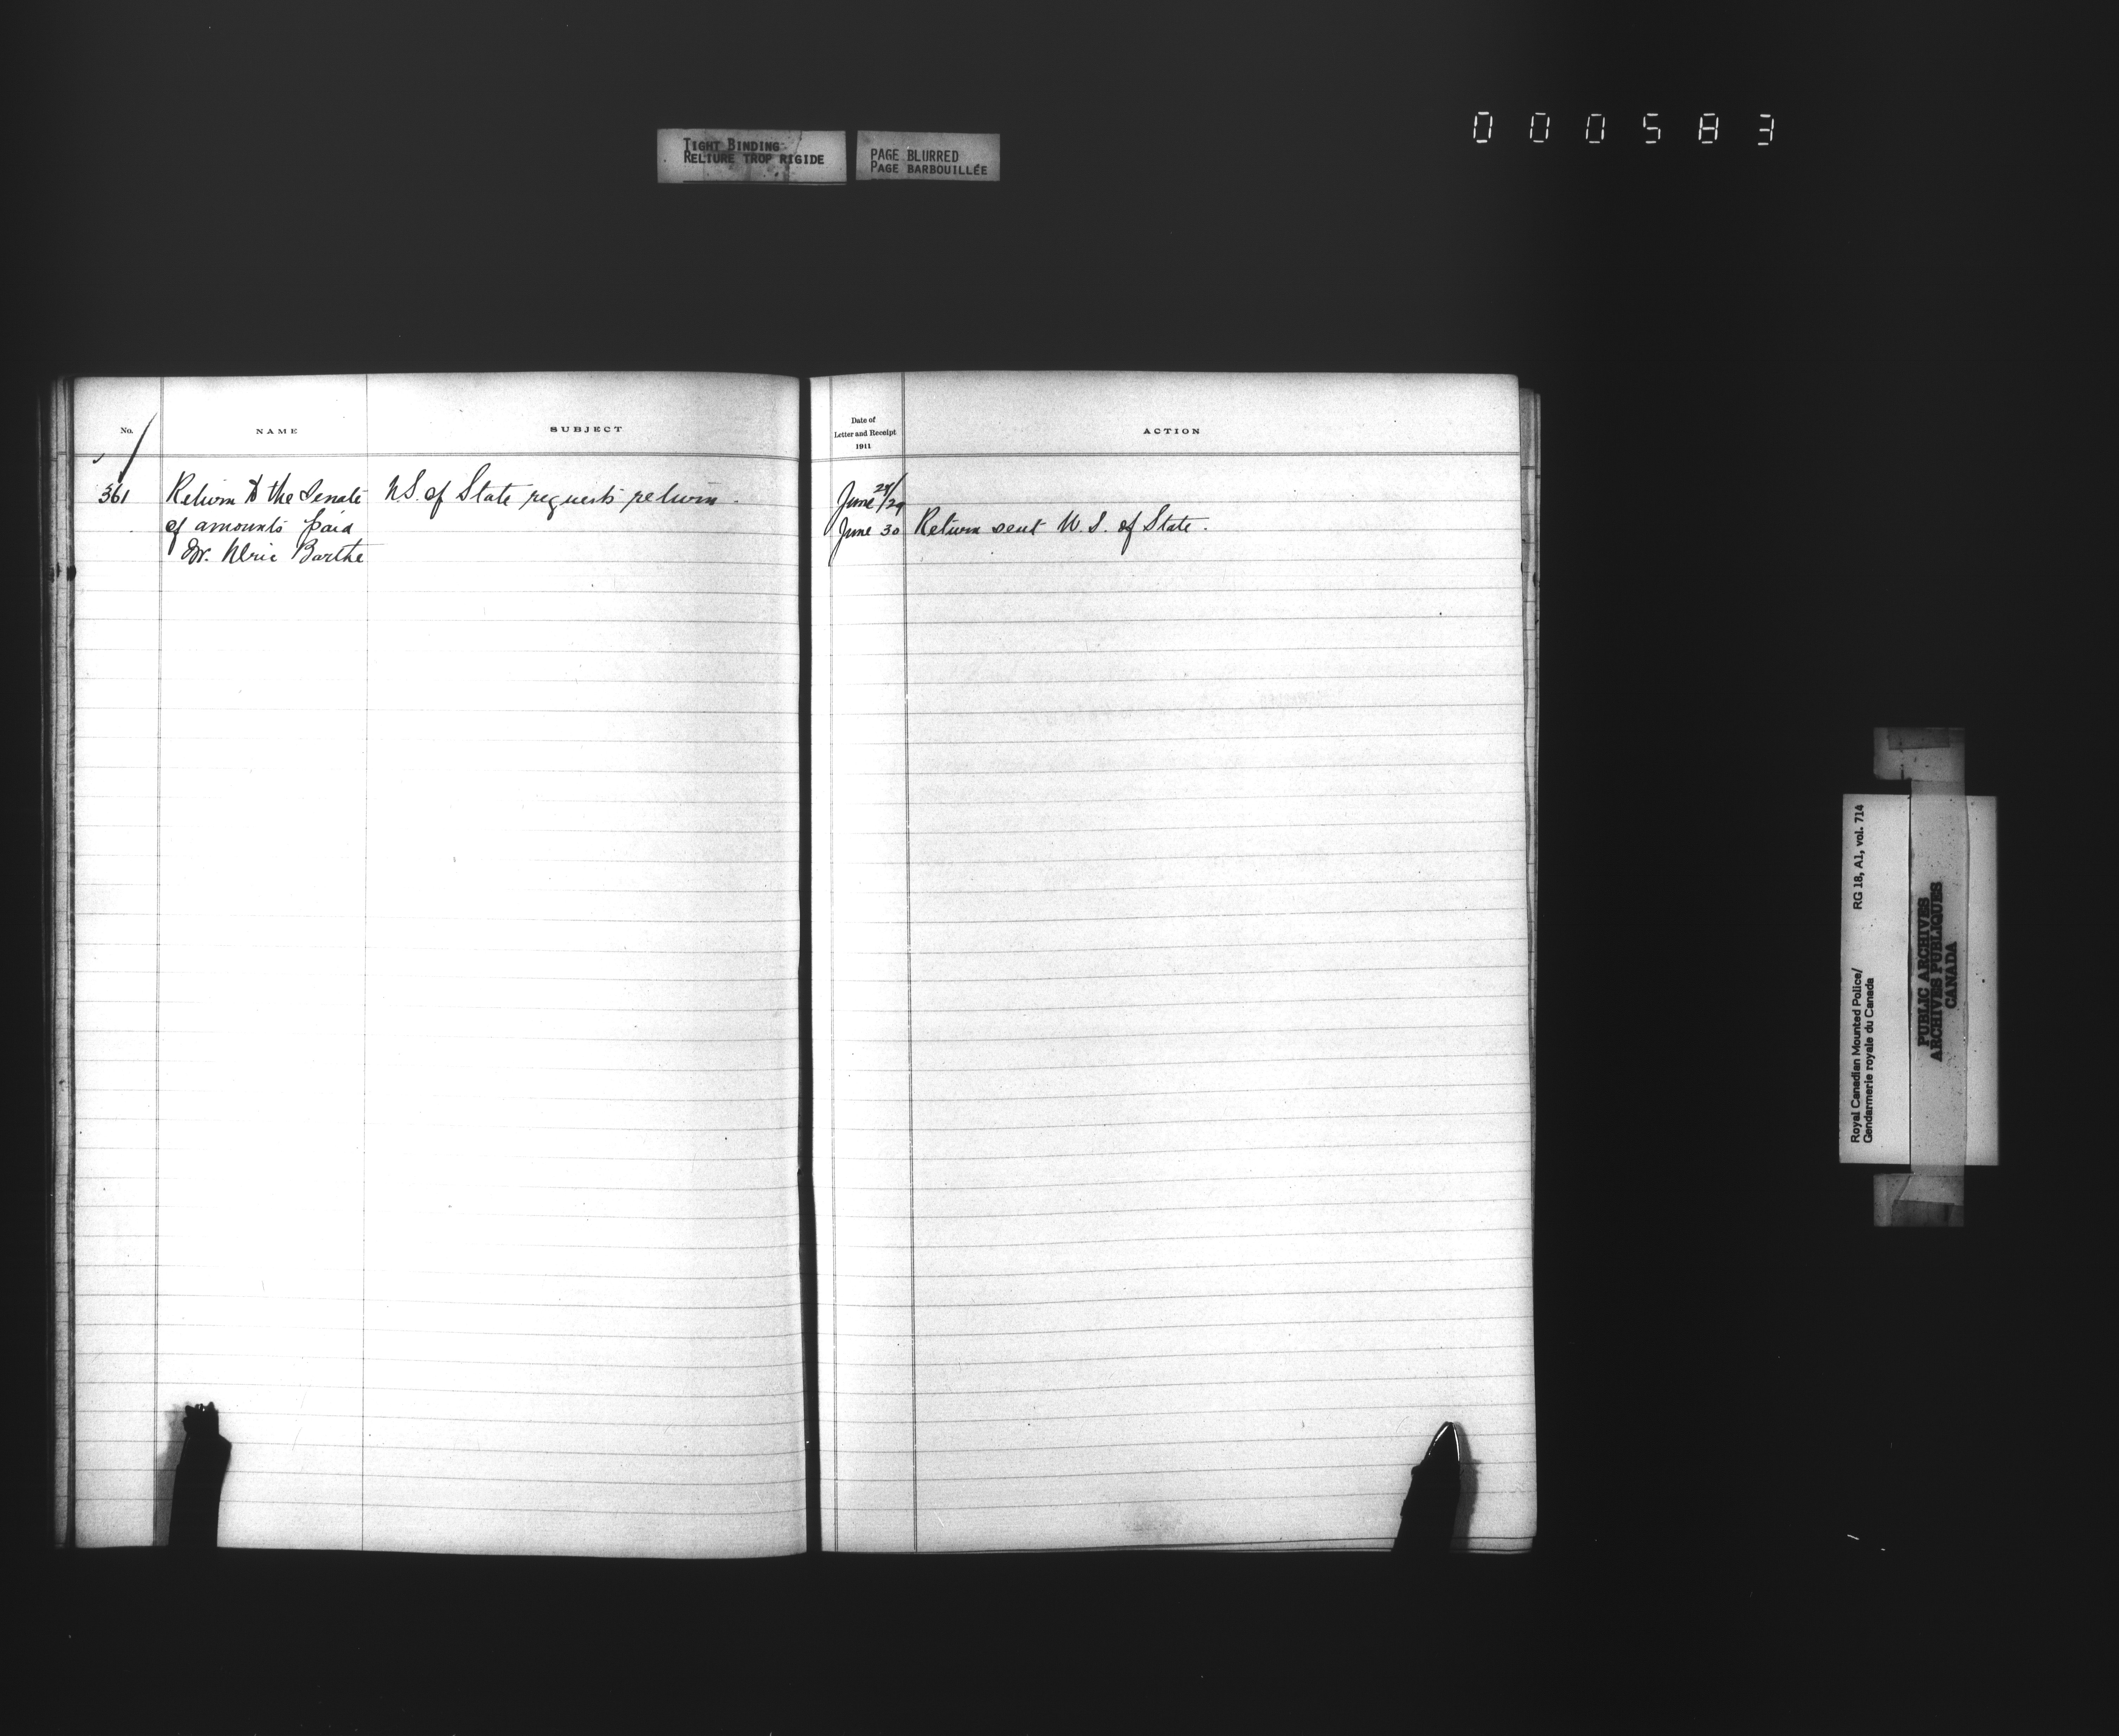 TIGHT BINDING
RELIURE TROP RIGIDE
PAGE BLURRED
PAGE BARBOUILLÉE
000583
No.
NAME
SUBJECT
Date of
Letter and Receipt
1911
ACTION
361
Return to the Senate
of amounts paid
Mr. Ulric Barthe
U.S. of State requests return.
June 28/29
June 30
Return sent U. S. of State.
Royal Canadian Mounted Police/
Gendarmerie royale du Canada
RG 18, A1, vol. 714
PUBLIC ARCHIVES
ARCHIVES PUBLIQUES
CANADA